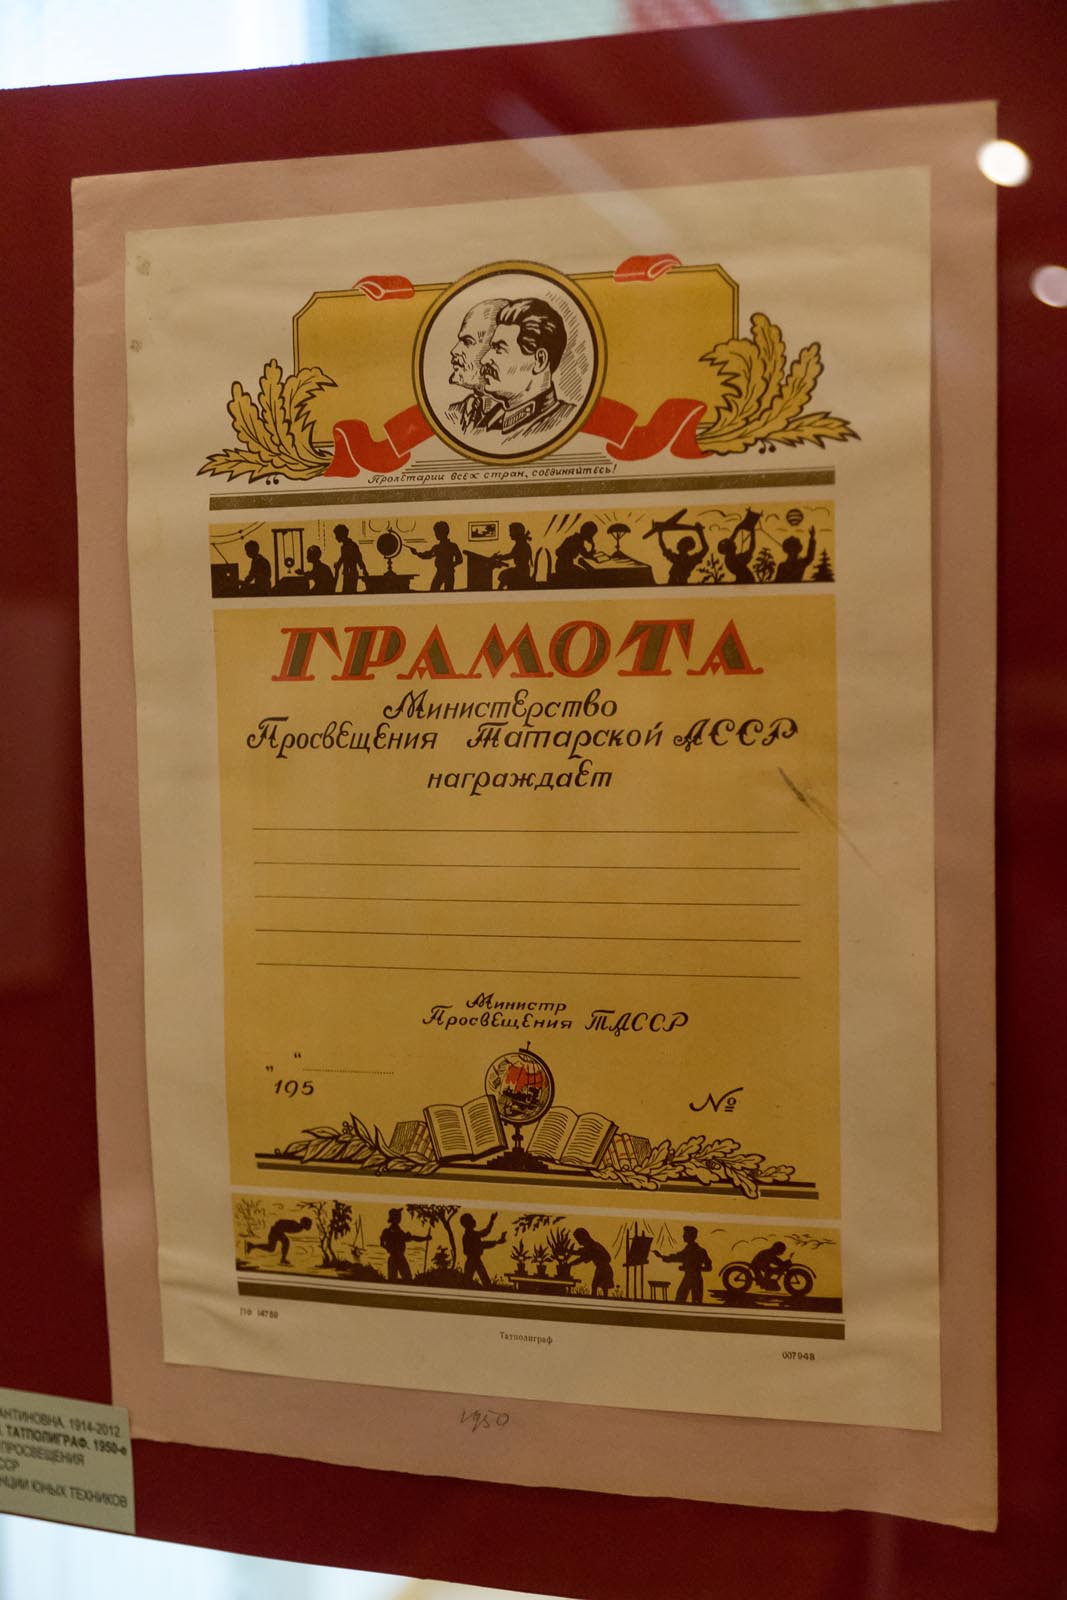 Пролетарии всех стран, соединяйтесь!
ГРАМОТА
Министерство
Просвещения Татарской АССР
награждает
Министр
Просвещения ТАССР
„ “
195
№
ПФ 04780
Татполиграф
007948
1950
АНТИНОВНА. 1914-2012
ТАТПОЛИГРАФ. 1950-е
ПРОСВЕЩЕНИЯ
ССР
НЦИИ ЮНЫХ ТЕХНИКОВ